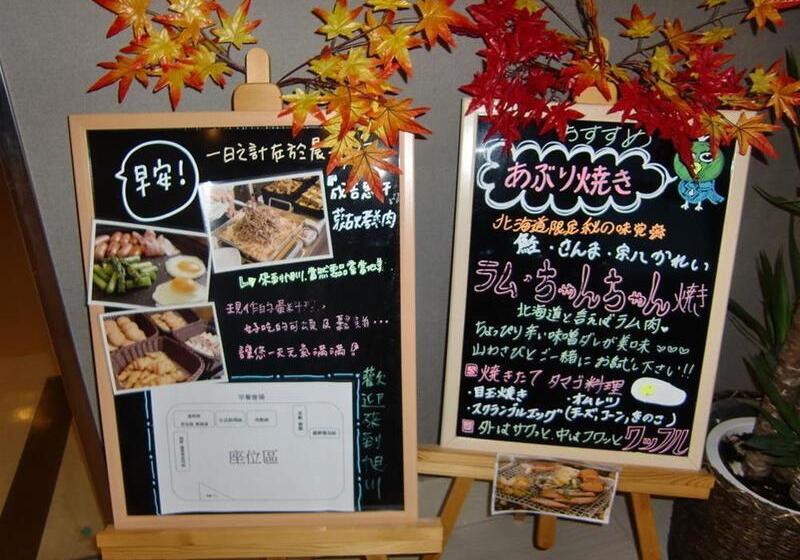 早安!
一日之計在於晨
成吉思汗
蒙古烤肉
來到旭川,當然要品嘗當地美
現作的
好吃的可頌及鬆餅…
讓您一天元氣滿滿!
歡迎來到旭川
早餐會場
座位區
おすすめ
あぶり焼き
北海道限定秋の味覚
鮭・さんま・宗八かれい
ラム・ちゃんちゃん焼き
北海道と言えばラム肉♥
ちょっぴり辛い味噌ダレが美味♡♡♡
山わさびとご一緒にお試し下さい!!
焼きたて タマゴ料理
・目玉焼き ・オムレツ
・スクランブルエッグ(チーズ・コーン・きのこ)
外はサクッと、中はフワッと ワッフル